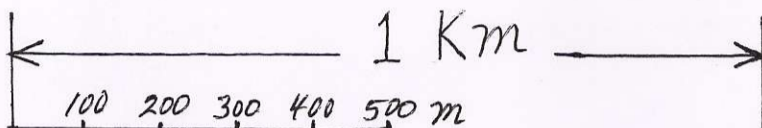 1 Km
100 200 300 400 500 m